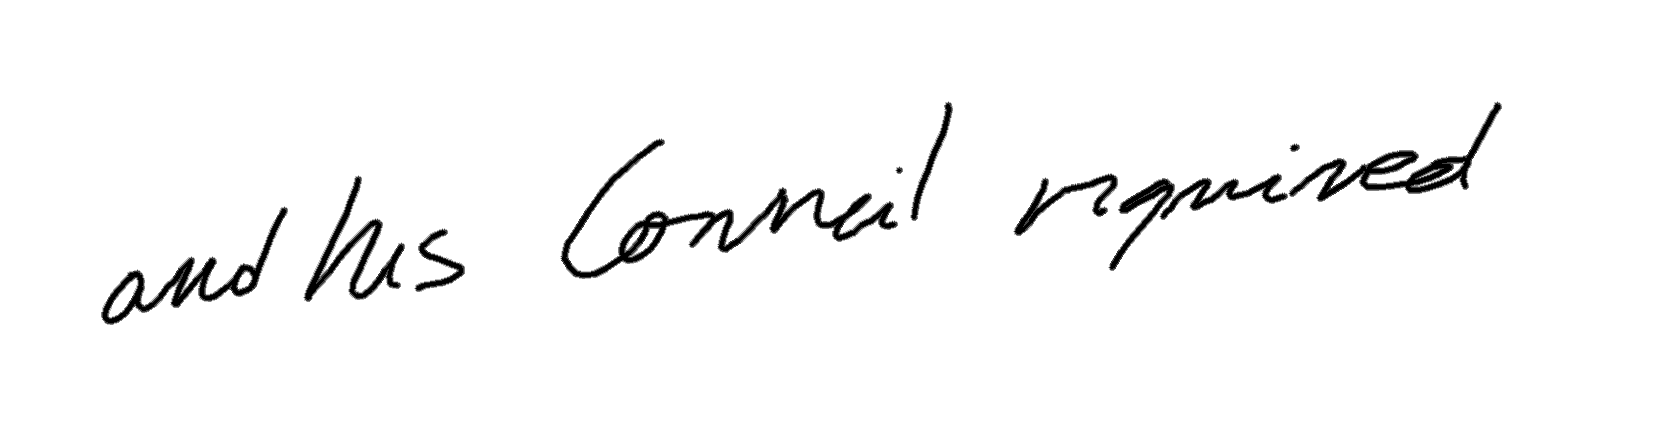 and his Council required